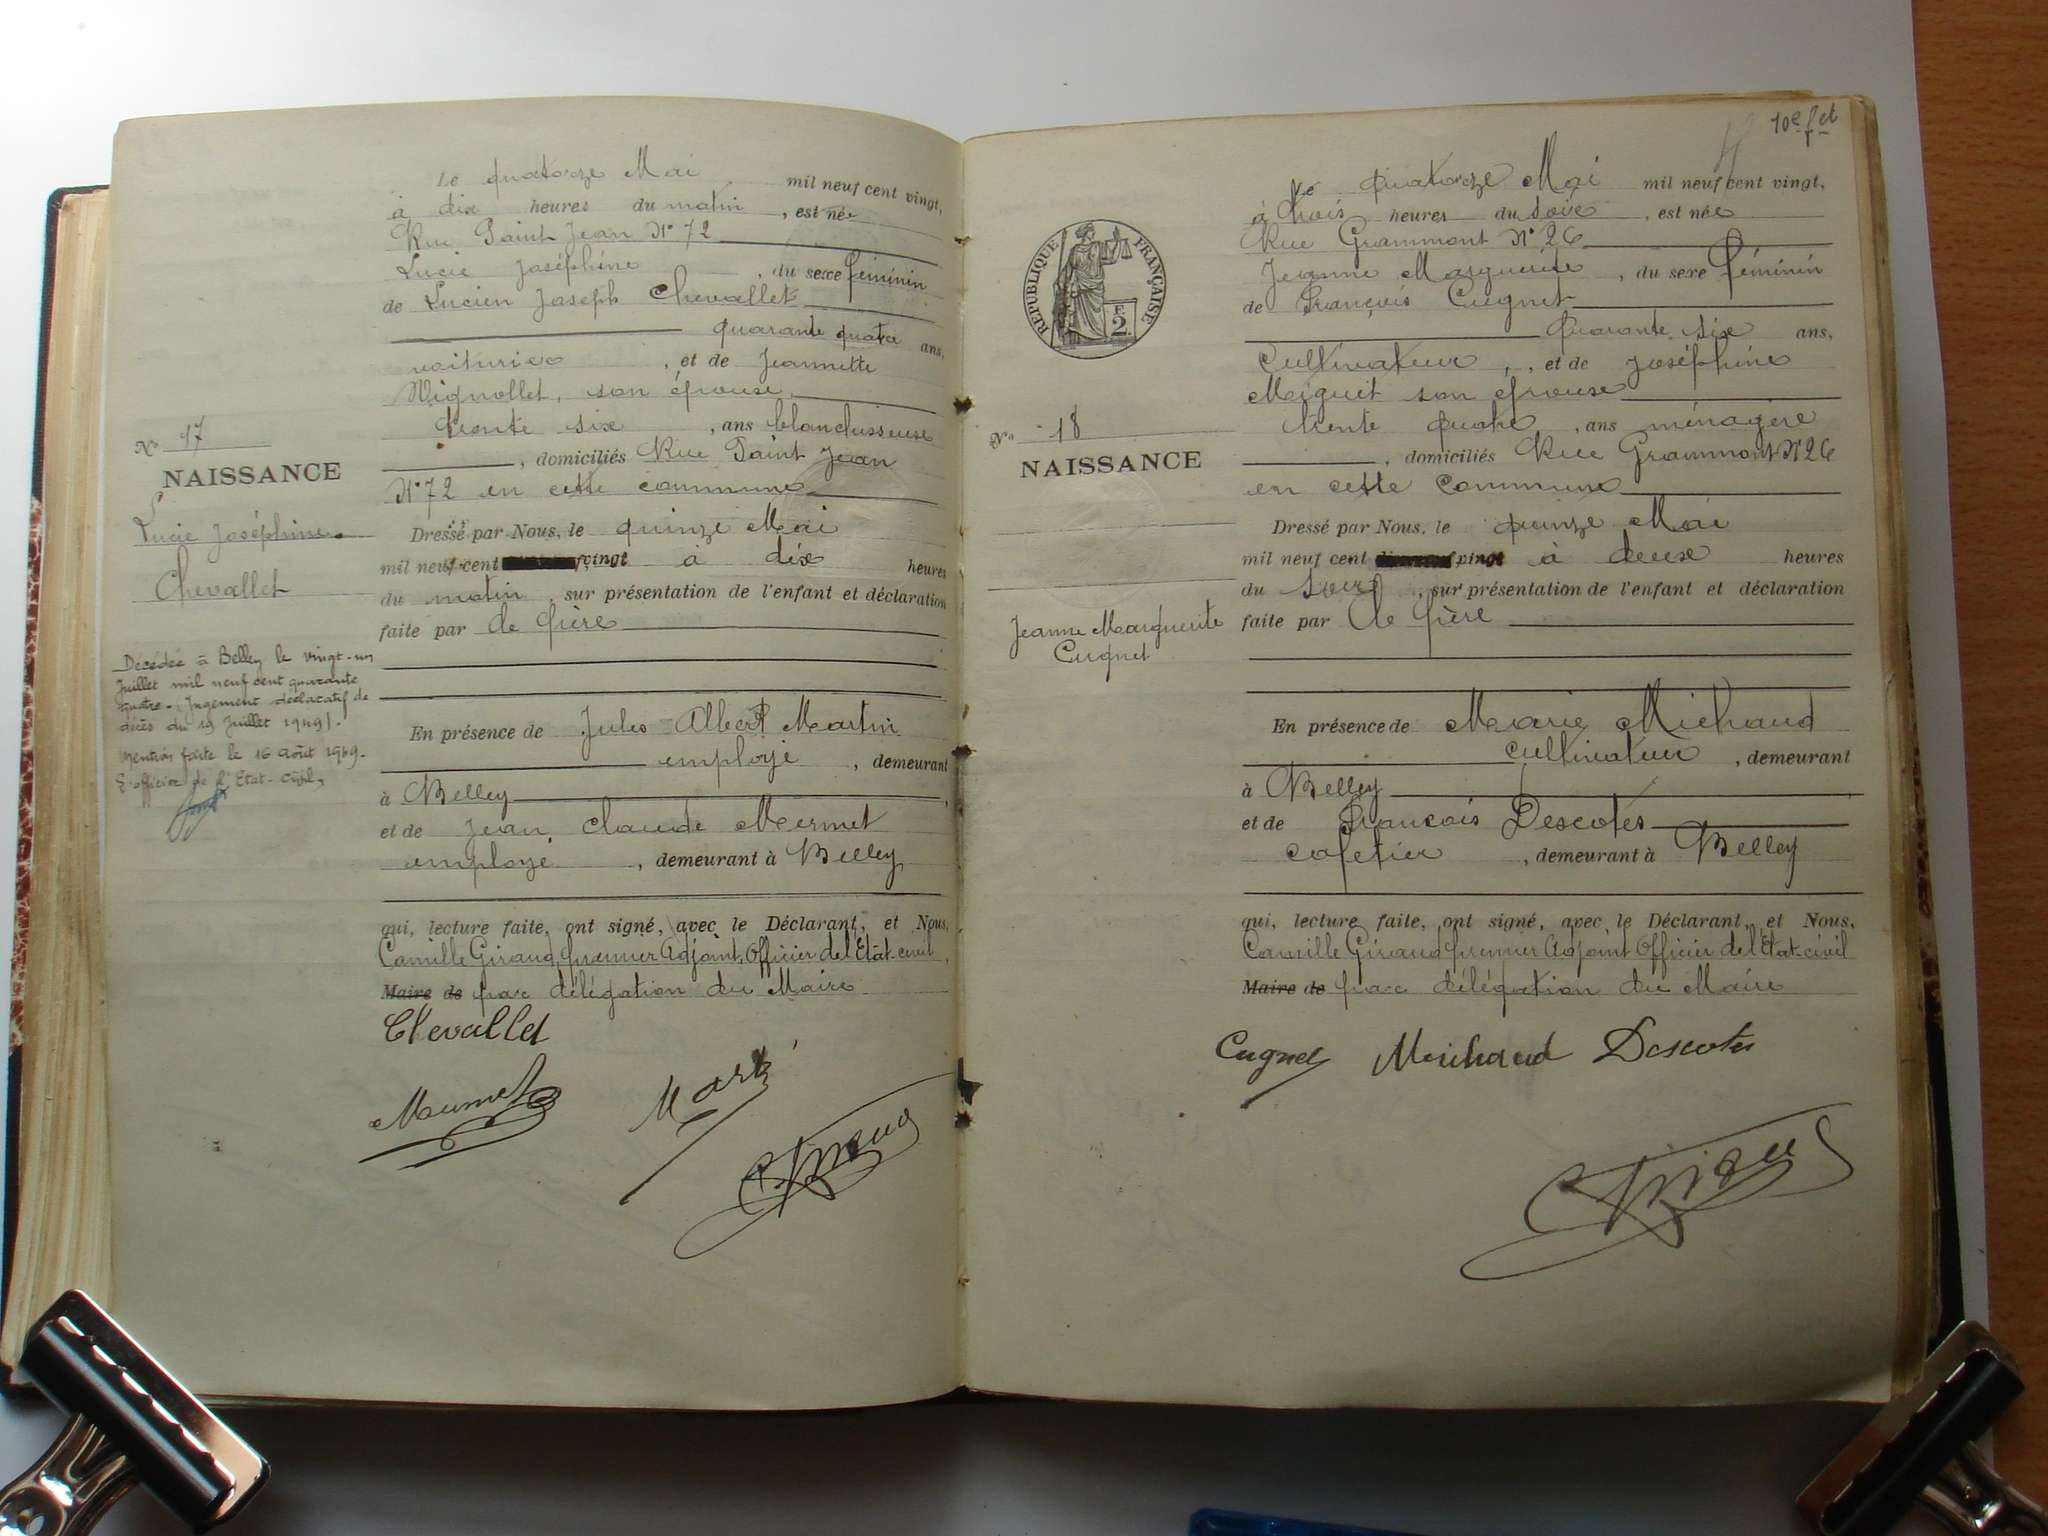 Nº 17
NAISSANCE
Lucie Joséphine
Chevallet
Décédée à Belley le vingt-un
Juillet mil neuf cent quarante
quatre. (Jugement déclaratif de
décès du 19 Juillet 1949).
Mention faite le 16 Août 1949.
L'officier de l'Etat-civil,
Le quatorze Mai mil neuf cent vingt,
à dix heures du matin, est née
Rue Saint Jean Nº 72
Lucie Joséphine, du sexe féminin
de Lucien Joseph Chevallet
quarante quatre ans,
voiturier, et de Jeannette
Vignollet, son épouse
trente six, ans blanchisseuse
, domiciliés Rue Saint Jean
Nº 72 en cette commune
Dressé par Nous, le quinze Mai
mil neuf cent vingt à dix heures
du matin, sur présentation de l'enfant et déclaration
faite par le père
En présence de Jules Albert Martin
employé, demeurant
à Belley,
et de Jean Claude Mermet
employé, demeurant à Belley
qui, lecture faite, ont signé, avec le Déclarant, et Nous,
Camille Giraud, premier Adjoint, Officier de l'Etat-civil,
Maire de par délégation du Maire
Chevallet
Mermet
10e fet
RÉPUBLIQUE FRANÇAISE
F.
2
Nº 18
NAISSANCE
Jeanne Marguerite
Cugnet
Le Quatorze Mai mil neuf cent vingt,
à trois heures du soir, est née
Rue Grammont Nº 26
Jeanne Marguerite, du sexe féminin
de François Cugnet
Quarante six ans,
Cultivateur, et de Joséphine
Meiguet son épouse
trente quatre, ans ménagère
, domiciliés Rue Grammont Nº 26
en cette Commune
Dressé par Nous, le quinze Mai
mil neuf cent vingt à deux heures
du soir, sur présentation de l'enfant et déclaration
faite par le père
En présence de Marie Michaud
Cultivateur, demeurant
à Belley
et de François Descotes
Cafetier, demeurant à Belley
qui, lecture faite, ont signé, avec le Déclarant, et Nous,
Camille Giraud premier Adjoint Officier de l'Etat-civil
Maire de par délégation du Maire
Cugnet Michaud Descotes
Giraud